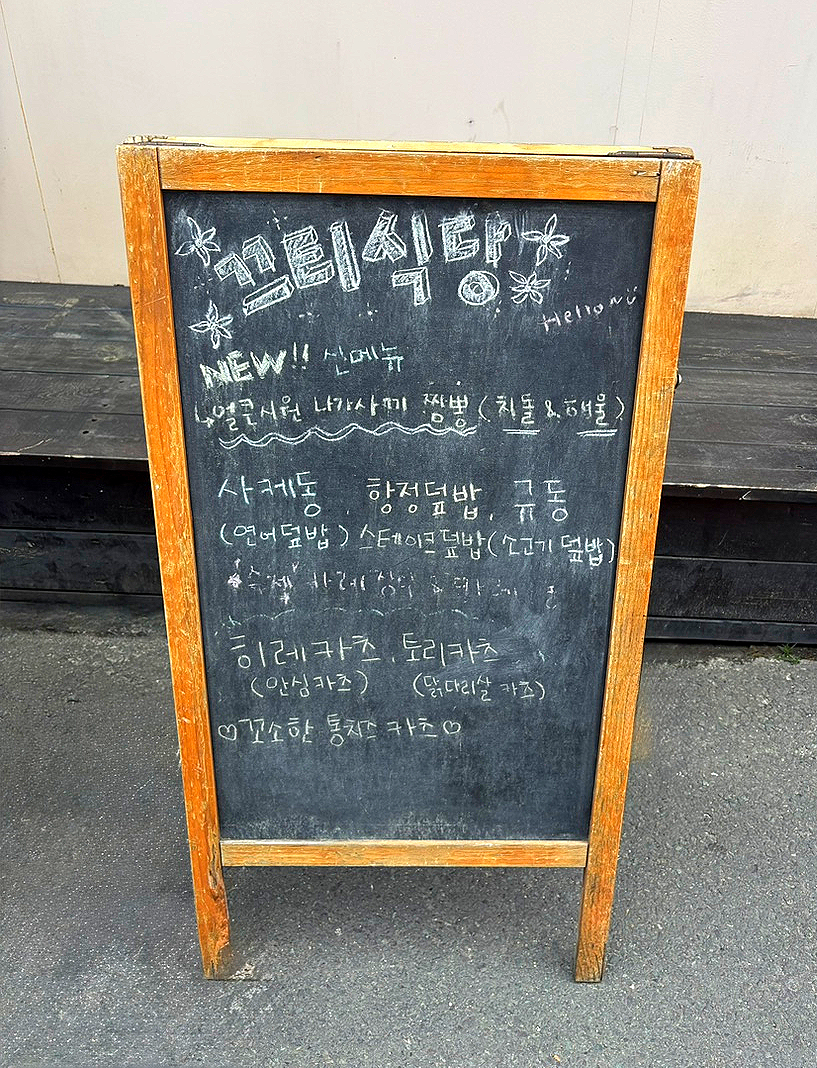 끄티식당
Hello~
NEW!! 신메뉴
↳얼큰시원 나가사끼 짬뽕 (차돌 & 해물)
사케동, 항정덮밥, 규동
(연어덮밥) 스테이크덮밥 (소고기 덮밥)
"수제" 카레
히레카츠, 토리카츠
(안심카츠) (닭다리살 카츠)
♡꼬소한 통치즈 카츠♡